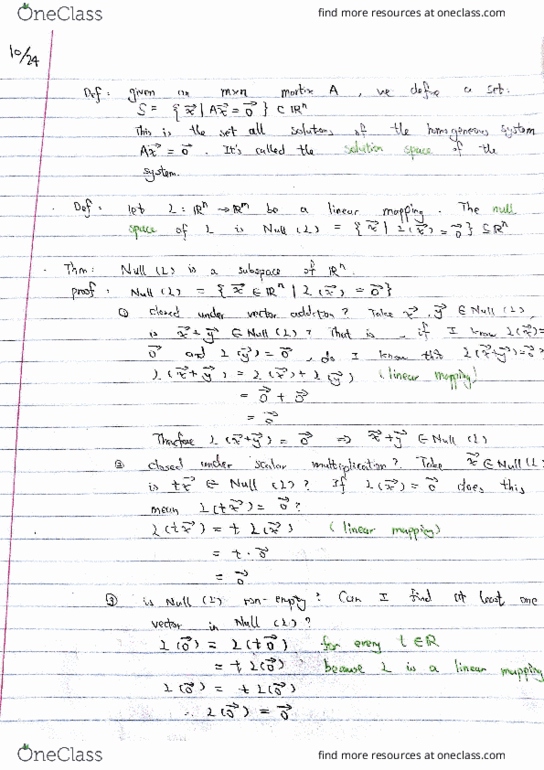 OneClass
find more resources at oneclass.com
10/24
Def: given an mxn matrix A, we define a set:
S = { x⃗ | Ax⃗ = 0⃗ } ⊂ ℝⁿ
This is the set all solutions of the homogeneous system
Ax⃗ = 0⃗. It's called the solution space of the
system.
Def: let L: ℝⁿ → ℝᵐ be a linear mapping. The null
space of L is Null (L) = { x⃗ | L(x⃗) = 0⃗ } ⊆ ℝⁿ
Thm: Null (L) is a subspace of ℝⁿ.
proof: Null (L) = { x⃗ ∈ ℝⁿ | L(x⃗) = 0⃗ }
① closed under vector addition? Take x⃗, y⃗ ∈ Null (L),
is x⃗ + y⃗ ∈ Null (L)? That is, if I know L(x⃗) =
0⃗ and L(y⃗) = 0⃗, do I know this L(x⃗+y⃗) = 0⃗?
L(x⃗+y⃗) = L(x⃗) + L(y⃗) (linear mapping)
= 0⃗ + 0⃗
= 0⃗
Therefore L(x⃗+y⃗) = 0⃗ ⇒ x⃗+y⃗ ∈ Null (L)
② closed under scalar multiplication? Take x⃗ ∈ Null (L)
is tx⃗ ∈ Null (L)? If L(x⃗) = 0⃗ does this
mean L(tx⃗) = 0⃗?
L(tx⃗) = t L(x⃗) (linear mapping)
= t · 0⃗
= 0⃗
③ is Null (L) non-empty? Can I find at least one
vector in Null (L)?
L(0⃗) = L(t0⃗) for every t ∈ ℝ
= t L(0⃗) because L is a linear mapping
L(0⃗) = t L(0⃗)
∴ L(0⃗) = 0⃗
OneClass
find more resources at oneclass.com